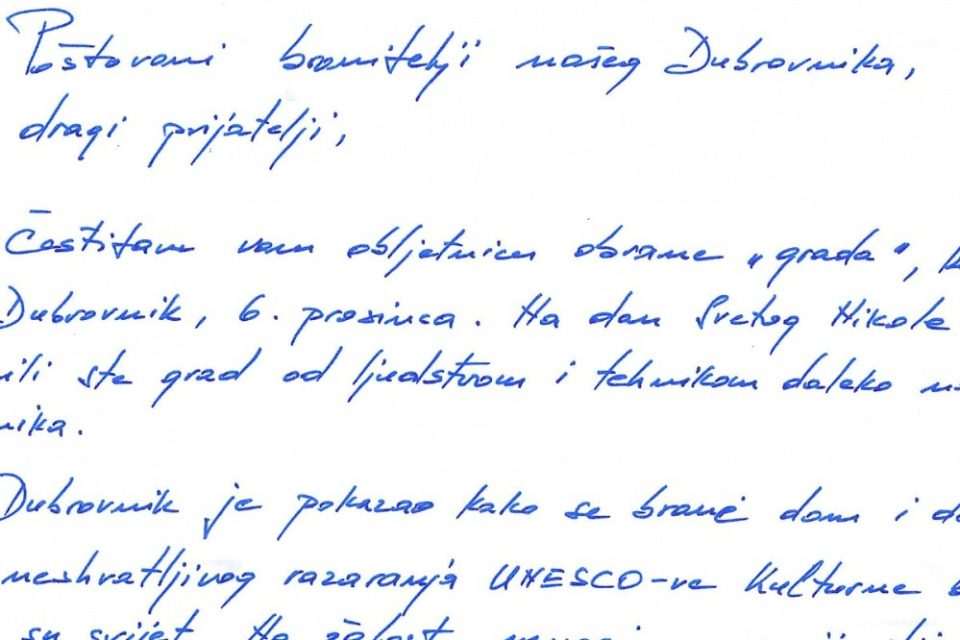 Poštovani branitelji našeg Dubrovnika,
dragi prijatelji,
Čestitam vam obljetnicu obrane „grada",
Dubrovnik, 6. prosinca. Na dan Svetog Nikole
ili ste grad od ljudstvom i tehnikom daleko
nika.
Dubrovnik je pokazao kako se brane dom i do
neshvatljivog razaranja UNESCO-ve kulturne
su svijet. Na žalost